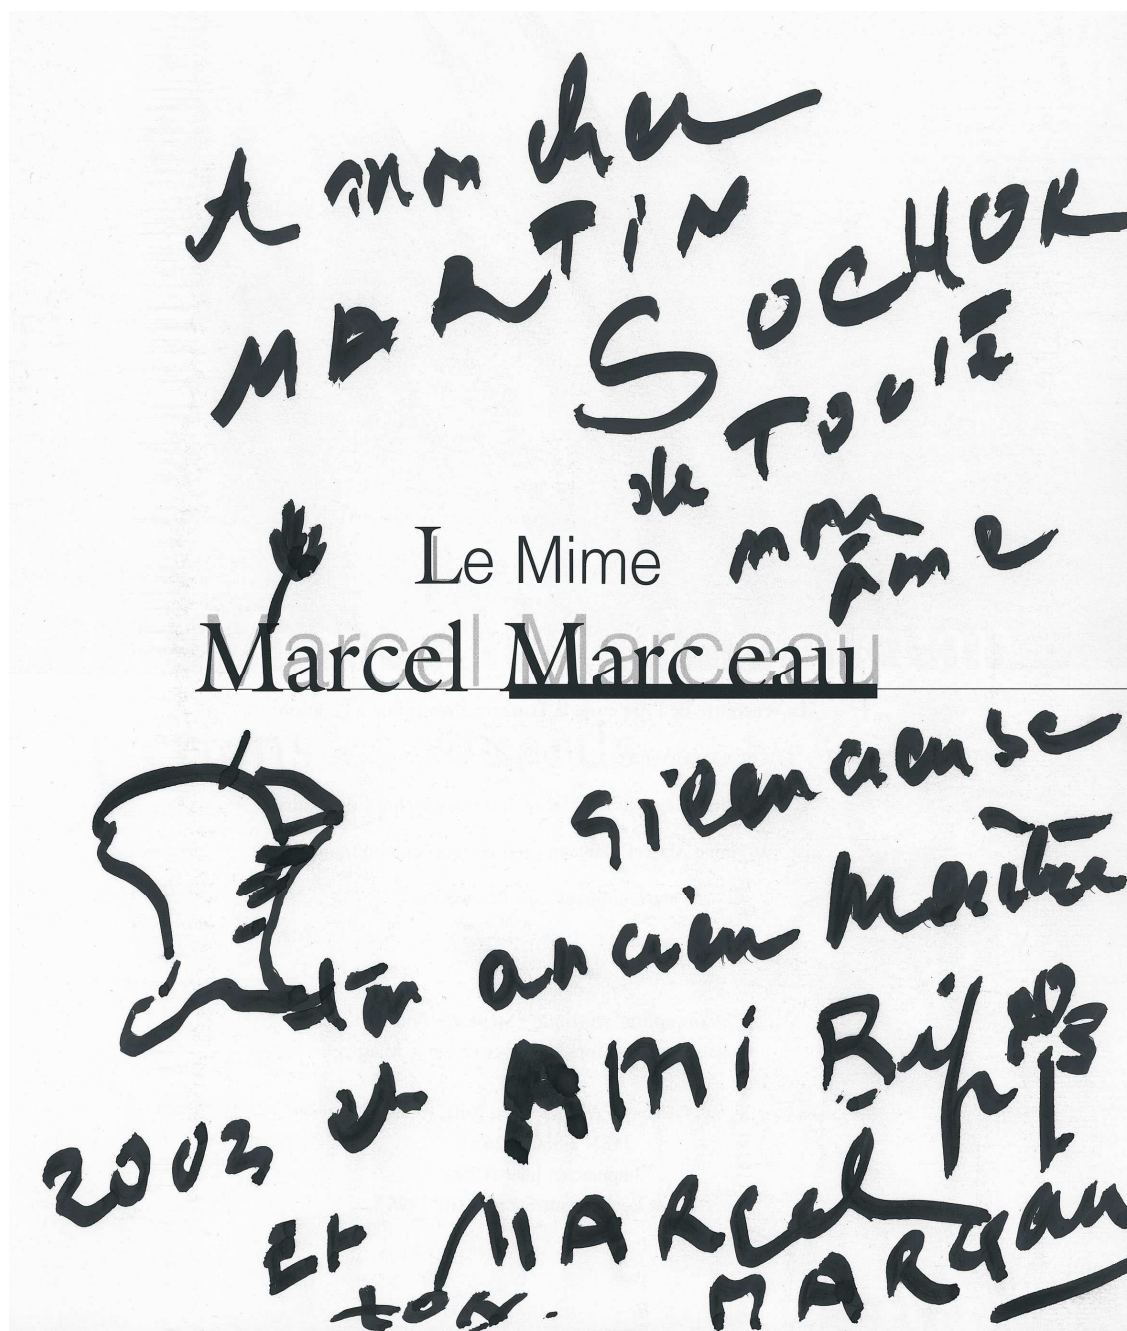 A mon cher
MARTIN
SOCHOR
de Toute
mon
âme
Le Mime
Marcel Marceau
silencieuse
ton ancien Maître
et Ami Bip
2003
Et MARCEL
MARCEAU